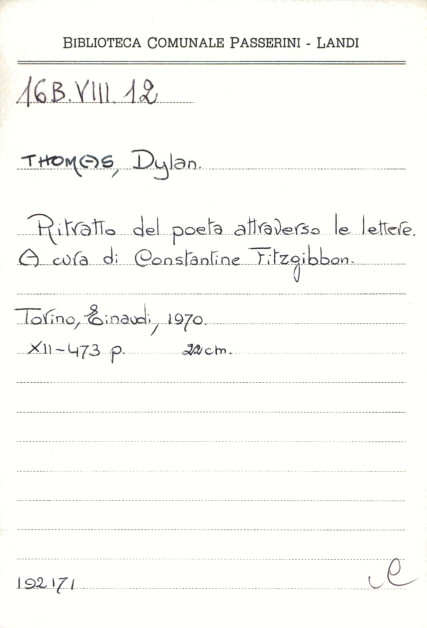 BIBLIOTECA COMUNALE PASSERINI - LANDI
16B.VIII.12
THOMAS, Dylan.
Ritratto del poeta attraverso le lettere.
A cura di Constantine Fitzgibbon.
Torino, Einaudi, 1970.
XII-473 p. 22cm.
192171